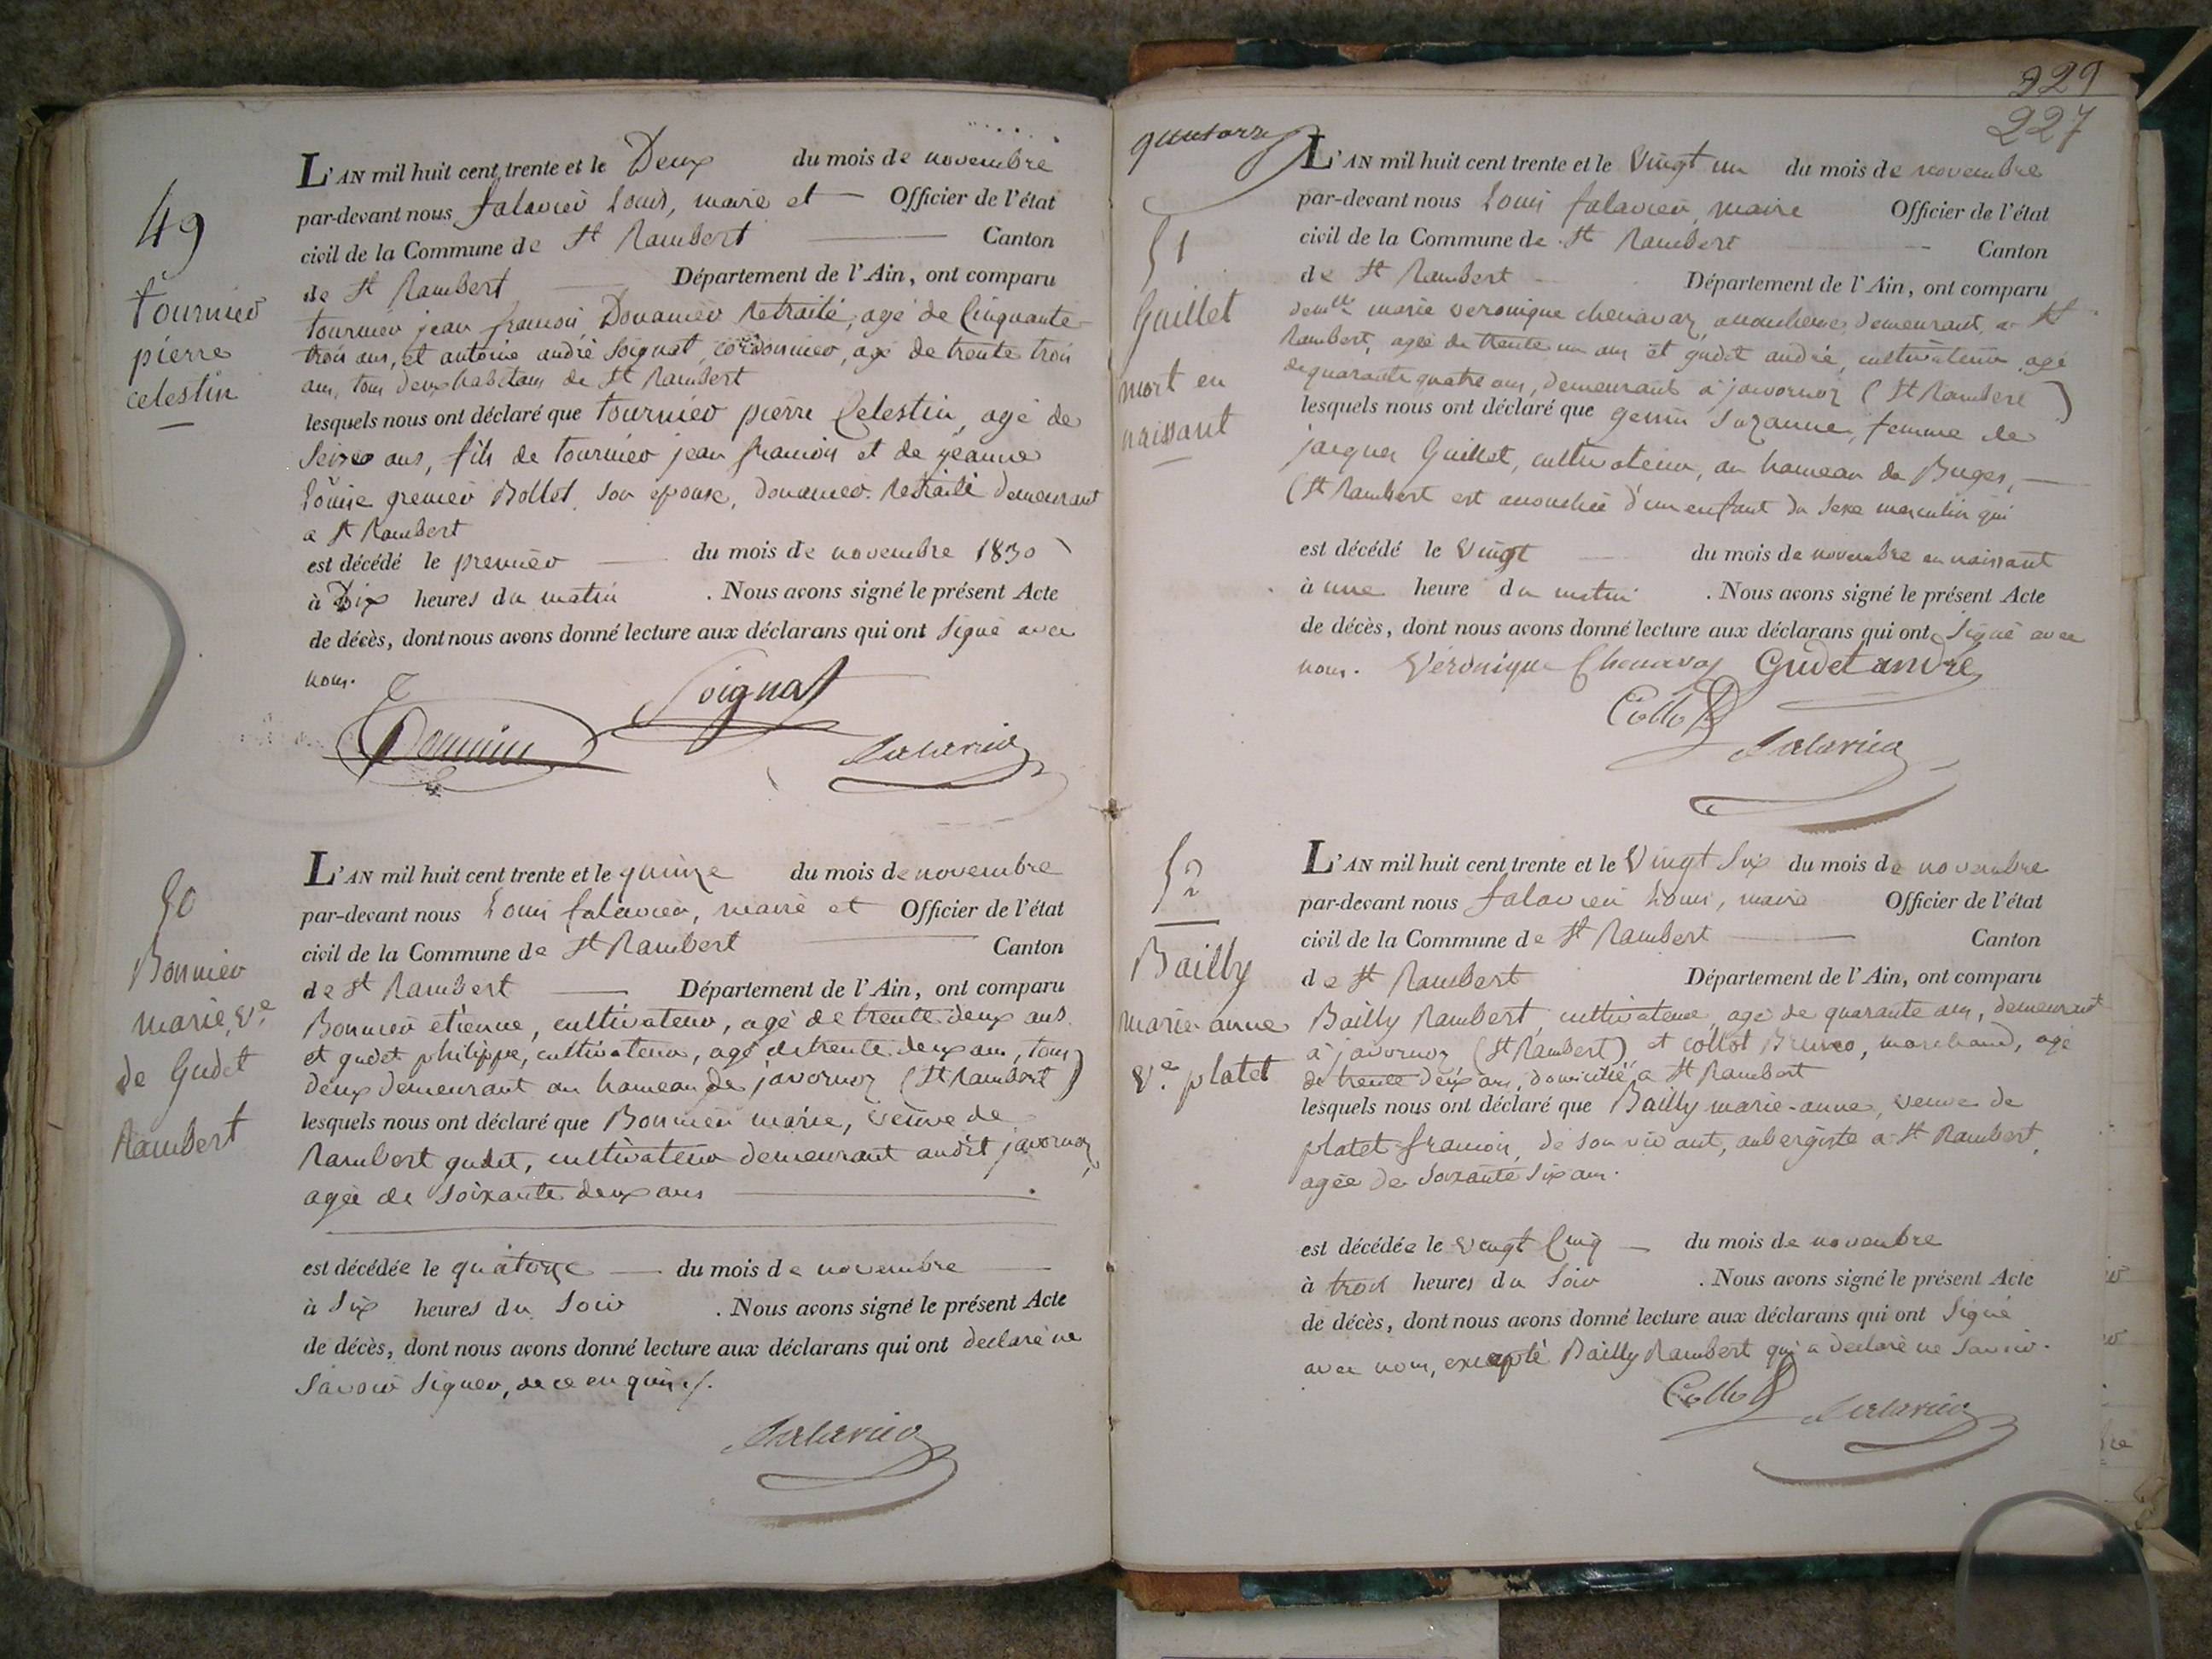 49
tournier
pierre
celestin
L'AN mil huit cent trente et le Deux du mois de novembre
par-devant nous falavier Louis, maire et Officier de l'état
civil de la Commune de St Rambert Canton
de St Rambert Département de l'Ain, ont comparu
tournier jean françois Douanier retraité, agé de Cinquante
trois ans, et antoine andré Soignat, cordonnier, agé de trente trois
ans, tous deux habitans de St Rambert
lesquels nous ont déclaré que tournier pierre Celestin, agé de
Seize ans, fils de tournier jean françois et de jeanne
Louise grenier Bollet son épouse, douanier retraité demeurant
a St Rambert
est décédé le premier du mois de novembre 1830
à Dix heures du matin . Nous avons signé le présent Acte
de décès, dont nous avons donné lecture aux déclarans qui ont signé avec
nous.
Soignat
50
Bonnier
marie, ve
de Gudet
Rambert
L'AN mil huit cent trente et le quinze du mois de novembre
par-devant nous Louis falavier, maire et Officier de l'état
civil de la Commune de St Rambert Canton
de St Rambert Département de l'Ain, ont comparu
Bonnier etienne, cultivateur, agé de trente deux ans
et gudet philippe, cultivateur, agé de trente deux ans, tous
deux demeurant au hameau de javornoz (St Rambert)
lesquels nous ont déclaré que Bonnier marie, veuve de
Rambert gudet, cultivateur demeurant audit javornoz,
agée de soixante deux ans
est décédée le quatorze du mois de novembre
à six heures du soir . Nous avons signé le présent Acte
de décès, dont nous avons donné lecture aux déclarans qui ont declaré ne
savoir signer, de ce enquis.
falavier
229
227
51
Guillet
mort en
naissant
L'AN mil huit cent trente et le vingt un du mois de novembre
par-devant nous Louis falavier, maire Officier de l'état
civil de la Commune de St Rambert Canton
de St Rambert Département de l'Ain, ont comparu
demlle marie veronique chenavaz, accoucheuse, demeurant, a St
Rambert, agée de trente un ans et gudet andré, cultivateur agé
de quarante quatre ans, demeurant à javornoz (St Rambert)
lesquels nous ont déclaré que genin suzanne, femme de
jacques Guillet, cultivateur, au hameau de Buges,
(St Rambert est accouchée d'un enfant du sexe masculin qui
est décédé le vingt du mois de novembre en naissant
à une heure du matin . Nous avons signé le présent Acte
de décès, dont nous avons donné lecture aux déclarans qui ont signé avec
nous. Véronique Chenavaz Gudet andré
Collot
falavier
52
Bailly
marie anne
ve platet
L'AN mil huit cent trente et le vingt six du mois de novembre
par-devant nous falavier Louis, maire Officier de l'état
civil de la Commune de St Rambert Canton
de St Rambert Département de l'Ain, ont comparu
Bailly Rambert, cultivateur, agé de quarante ans, demeurant
à javornoz (St Rambert), et collot Bruno, marchand, agé
de trente deux ans, domicilié a St Rambert
lesquels nous ont déclaré que Bailly marie-anne, veuve de
platet françois, de son vivant, aubergiste a St Rambert,
agée de soixante six ans.
est décédée le vingt cinq du mois de novembre
à trois heures du soir . Nous avons signé le présent Acte
de décès, dont nous avons donné lecture aux déclarans qui ont signé
avec nous, excepté Bailly Rambert qui a declaré ne savoir.
Collot
falavier